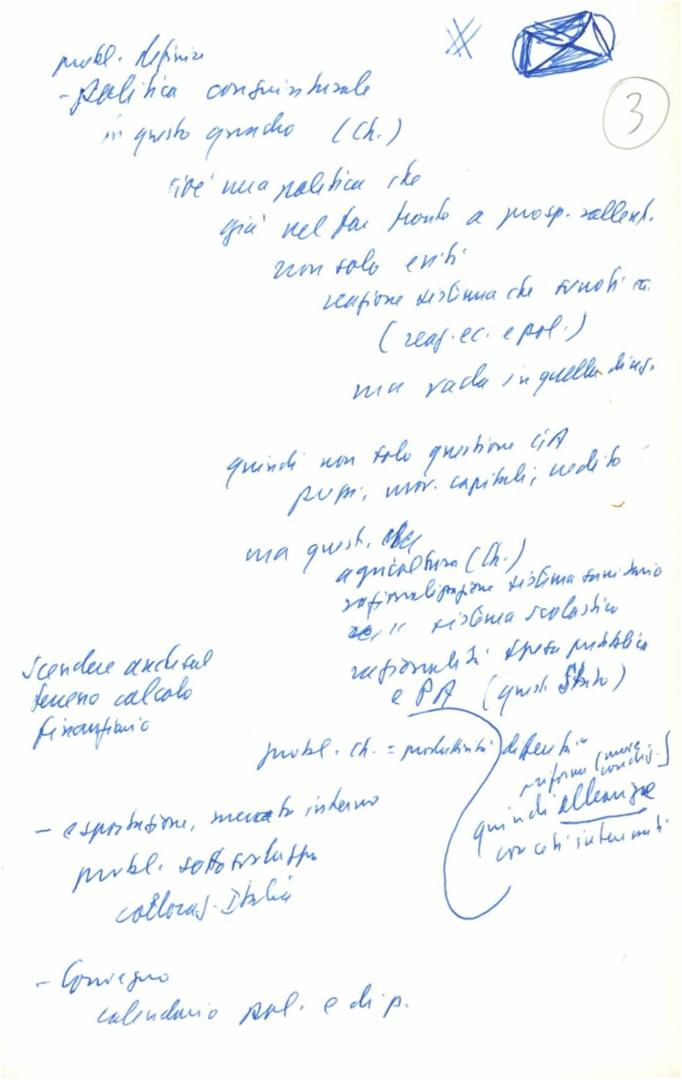 3
probl. definire
- politica congiunturale
in questo quadro (Ch.)
cioè una politica che
già nel far fronte a prosp. rallent.
non solo eviti
reazione sistema che
(reaz. ec. e pol.)
ma vada in quella direz.
quindi non solo questione
prezzi, mov. capitali, credito
ma quest.
agricoltura (Ch.)
razionalizzazione sistema sanitario
" sistema scolastico
spesa pubblica
e PA (quest. Stato)
Scendere anche sul
terreno calcolo
finanziario
probl. Ch. = produttività
riforme
quindi alleanze
con ceti interessati
- esportazione, mercato interno
probl. sottosviluppo
collocaz. Italia
- Convegno
calendario pol. e di p.